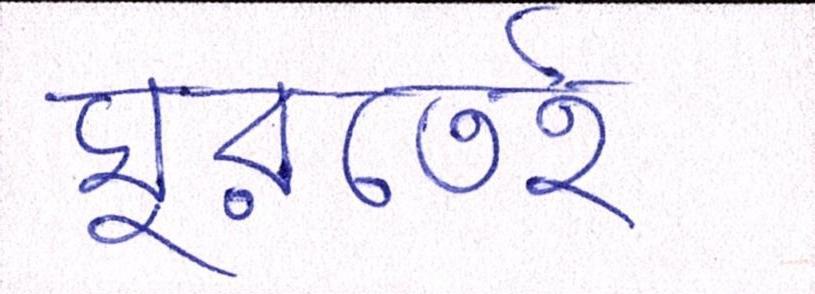 ঘুরতেই